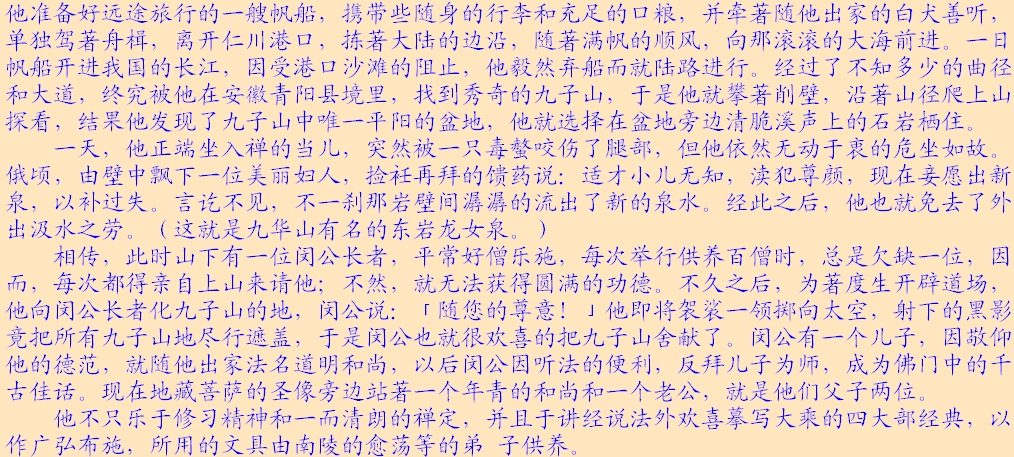 他准备好远途旅行的一艘帆船，携带些随身的行李和充足的口粮，并牵著随他出家的白犬善听，
单独驾著舟楫，离开仁川港口，拣著大陆的边沿，随著满帆的顺风，向那滚滚的大海前进。一日
帆船开进我国的长江，因受港口沙滩的阻止，他毅然弃船而就陆路进行。经过了不知多少的曲径
和大道，终究被他在安徽青阳县境里，找到秀奇的九子山，于是他就攀著削壁，沿著山径爬上山
探看，结果他发现了九子山中唯一平阳的盆地，他就选择在盆地旁边清脆溪声上的石岩栖住。
一天，他正端坐入禅的当儿，突然被一只毒螫咬伤了腿部，但他依然无动于衷的危坐如故。
俄顷，由壁中飘下一位美丽妇人，捡衽再拜的馈药说：适才小儿无知，渎犯尊颜，现在妾愿出新
泉，以补过失。言讫不见，不一刹那岩壁间潺潺的流出了新的泉水。经此之后，他也就免去了外
出汲水之劳。（这就是九华山有名的东岩龙女泉。）
相传，此时山下有一位闵公长者，平常好僧乐施，每次举行供养百僧时，总是欠缺一位，因
而，每次都得亲自上山来请他；不然，就无法获得圆满的功德。不久之后，为著度生开辟道场，
他向闵公长者化九子山的地，闵公说：「随您的尊意！」他即将袈裟一领掷向太空，射下的黑影
竟把所有九子山地尽行遮盖，于是闵公也就很欢喜的把九子山舍献了。闵公有一个儿子，因敬仰
他的德范，就随他出家法名道明和尚，以后闵公因听法的便利，反拜儿子为师，成为佛门中的千
古佳话。现在地藏菩萨的圣像旁边站著一个年青的和尚和一个老公，就是他们父子两位。
他不只乐于修习精神和一而清朗的禅定，并且于讲经说法外欢喜摹写大乘的四大部经典，以
作广弘布施，所用的文具由南陵的愈荡等的弟 子供养。